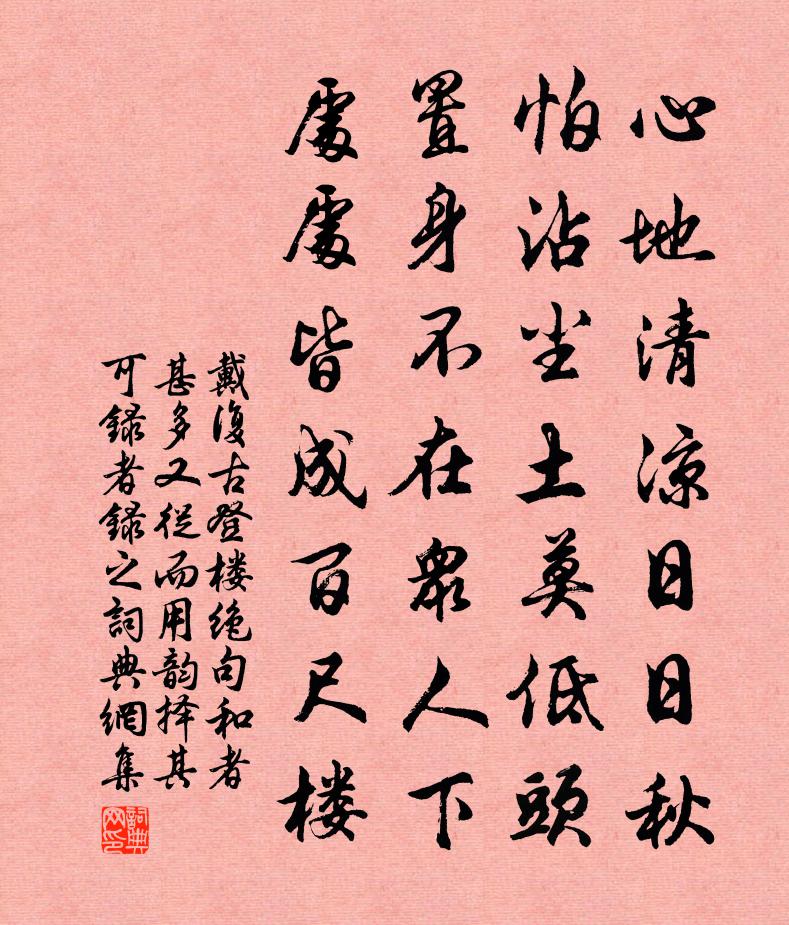 心地清凉日日秋
怕沾尘土莫低頭
置身不在衆人下
處處皆成百尺楼
戴復古登楼绝句和者
甚多又從而用韵择其
可録者録之詞典網集
詞典网印